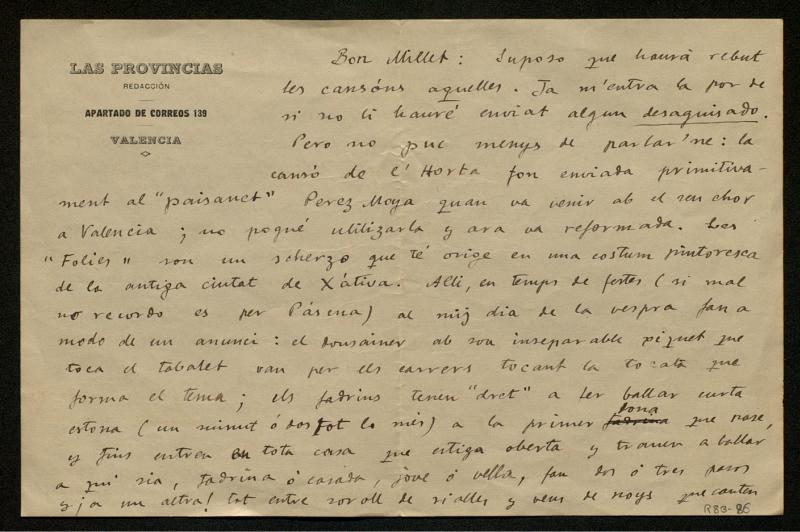 LAS PROVINCIAS
REDACCIÓN
APARTADO DE CORREOS 139
VALENCIA
Bon Millet: Suposo que haurà rebut
les cansóns aquelles. Ja m'entra la por de
si no li hauré enviat algun desaguisado.
Pero no puc menys de parlar'ne: la
cansó de l'Horta fon enviada primitiva-
ment al "paisanet" Perez Moya quan va venir ab el seu chor
a Valencia; no pogué utilizarla y ara va reformada. Les
"Folies" son un scherzo que té orige en una costum pintoresca
de la antiga ciutat de Xátiva. Alli, en temps de festes (si mal
no recordo es per Páscua) al mig dia de la vespra fan a
modo de un anunci: el dousainer ab son inseparable piquet que
toca el tabalet van per els carrers tocant la tocata que
forma el tema; els fadrins tenen "dret" a fer ballar curta
estona (un minut ó dos tot lo més) a la primer fadrina dona que pase,
y fins entren en tota casa que estiga oberta y trauen a ballar
a qui sia, fadrina ó casada, jove ó vella, fan dos ó tres pasos
y ja un altra! tot entre soroll de rialles y veus de noys que canten
R83-86